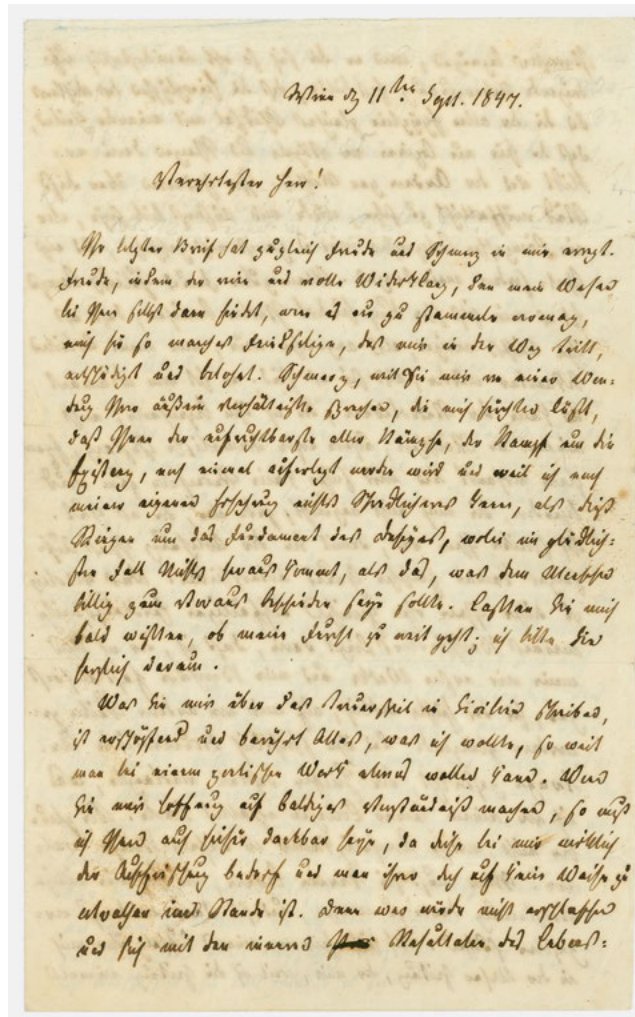 Wien d. 11ten Sept. 1847.
Verehrtester Herr!
Ihr letzter Brief hat zugleich Freude und Schmerz in mir erregt.
Freude, indem der reine und volle Widerklang, den mein Wesen
bei Ihnen selbst dann findet, wenn es nur zu stammeln vermag,
mich für so manches Feindselige, das mir in den Weg tritt,
entschädigt und belohnt. Schmerz, weil Sie mir von einer Wen-
dung Ihrer äußern Verhältnisse sprechen, die mich fürchten läßt,
daß Ihnen der unfruchtbarste aller Kämpfe, der Kampf um die
Existenz, noch einmal auferlegt werden wird und weil ich nach
meiner eigenen Erfahrung nichts Schrecklicheres kenne, als dieß
Ringen um das Fundament des Daseyns, wobei im glücklich-
sten Fall Nichts heraus kommt, als das, was dem Menschen
billig zum Voraus beschieden seyn sollte. Lassen Sie mich
bald wissen, ob meine Furcht zu weit geht; ich bitte Sie
herzlich darum.
Was Sie mir über das Trauerspiel in Sicilien schreiben,
ist erschöpfend und berührt Alles, was ich wollte, so weit
man bei einem poetischen Werk etwas wollen kann. Wenn
Sie mir Hoffnung auf baldiges Verständniß machen, so muß
ich Ihnen auch hiefür dankbar seyn, da diese bei mir wirklich
der Auffrischung bedarf und man ihrer doch auf keine Weise zu
entrathen im Stande ist. Denn wer würde nicht erschlaffen
und sich mit den innern Resultaten des Lebens-